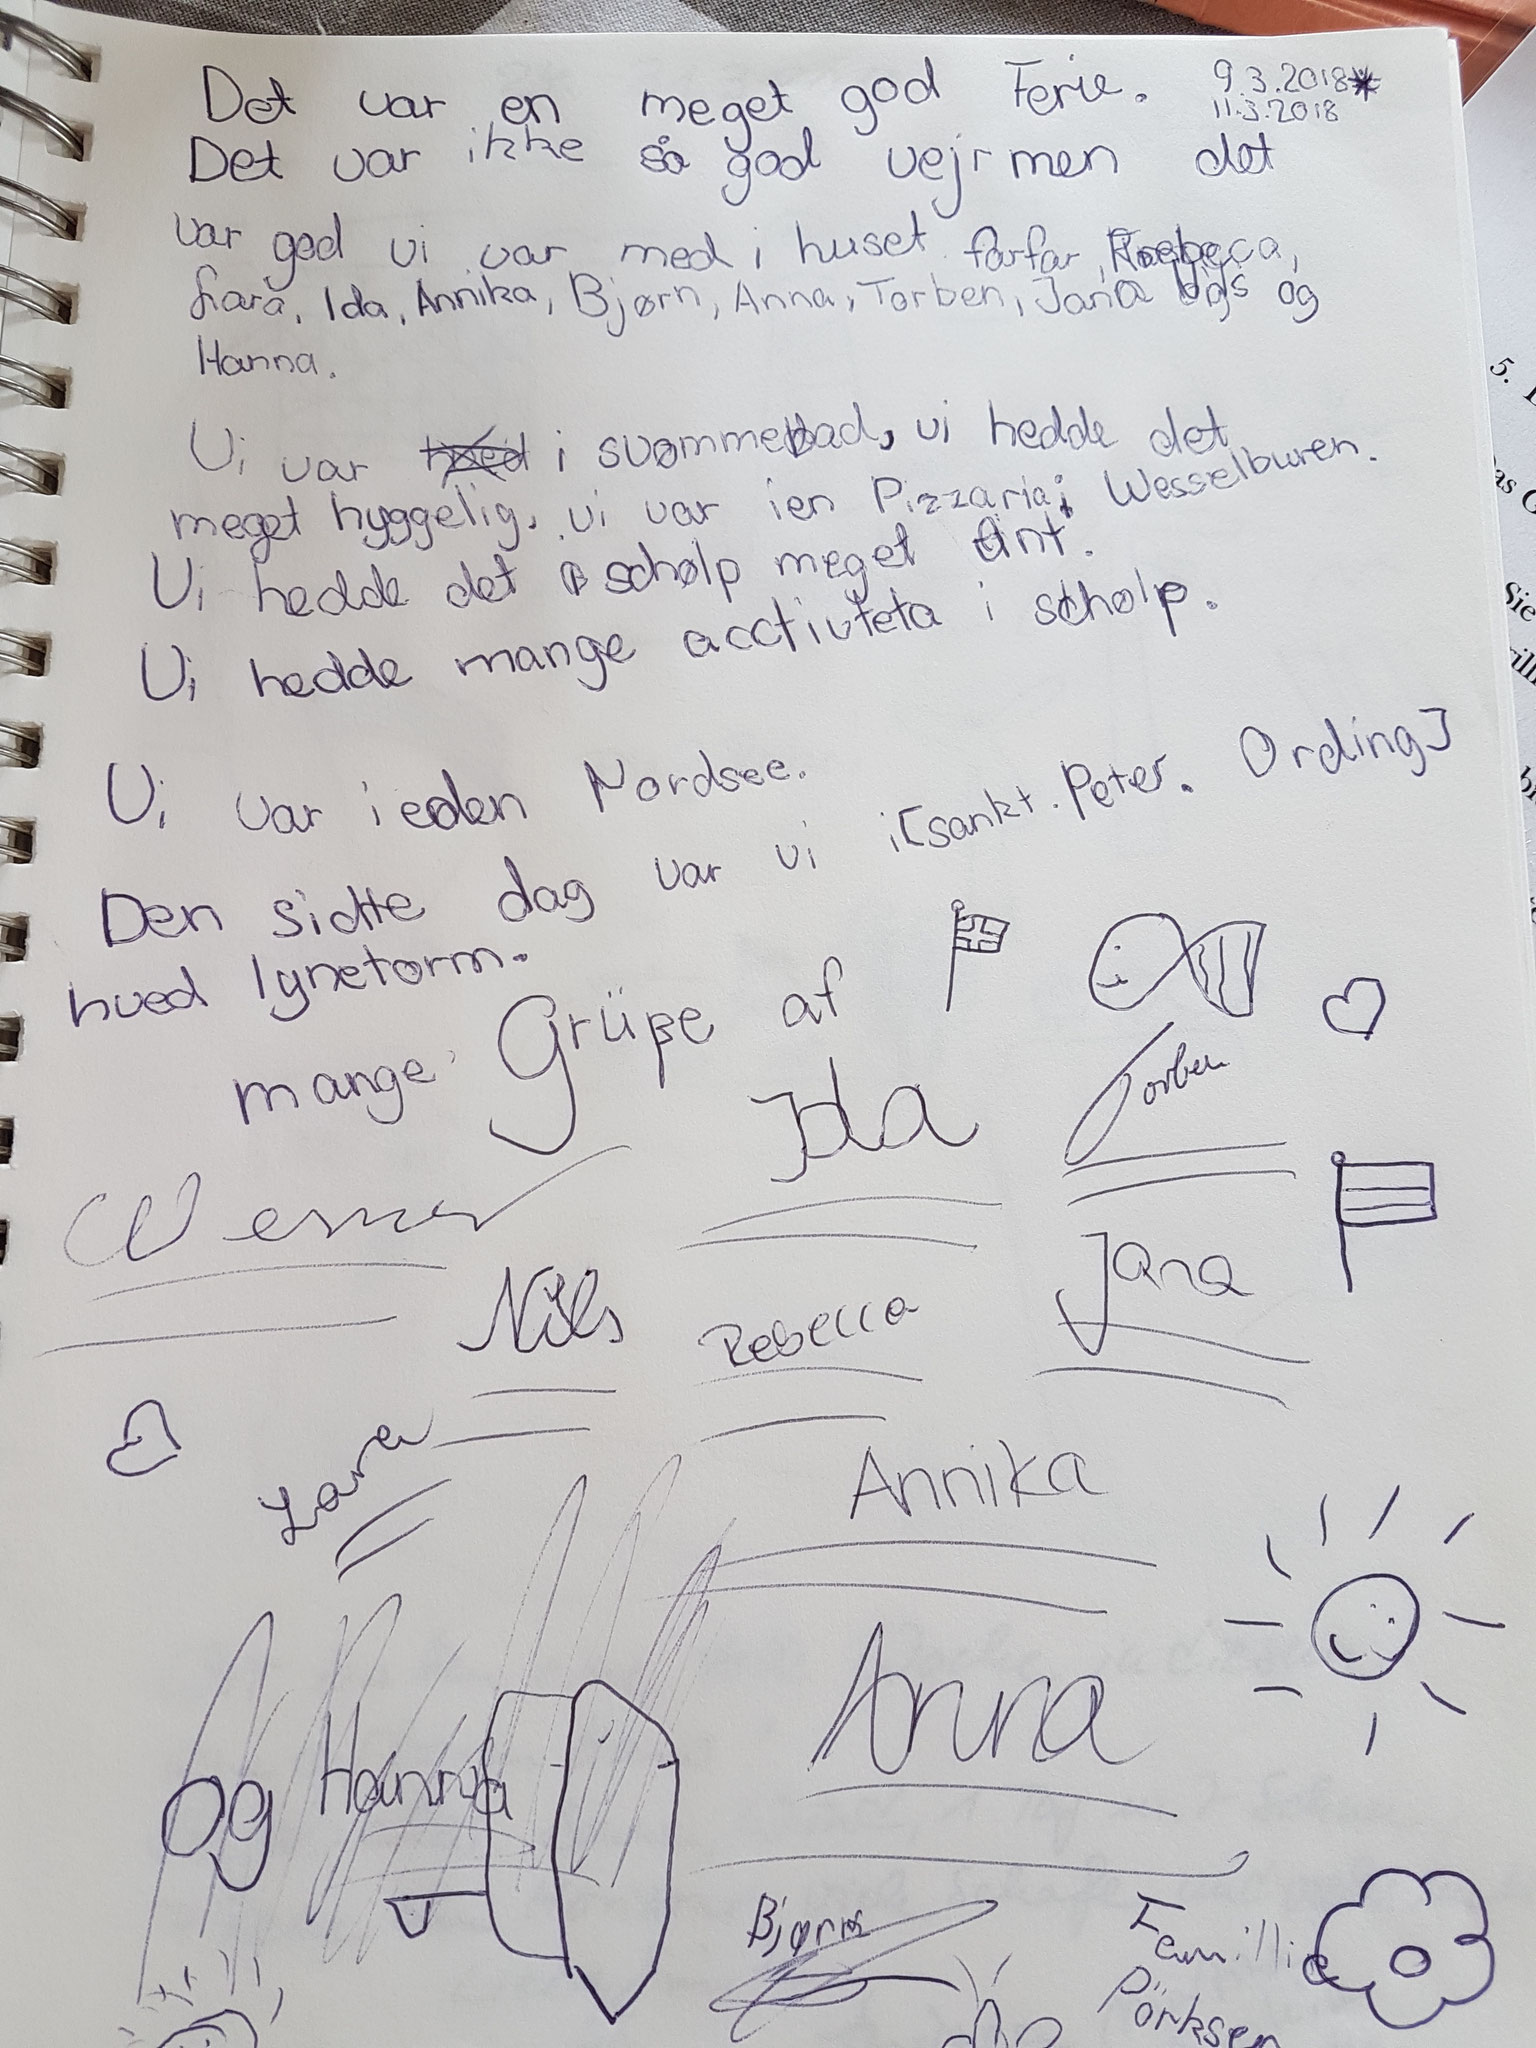 Det var en meget god Ferie. 9.3.2018*
11.3.2018
Det var ikke så god vejr men det
var god vi var med i huset farfar, Rebecca,
Lara, Ida, Annika, Bjørn, Anna, Torben, Jana og
Hanna.
Vi var i svømmebad, vi hedde det
meget hyggelig, vi var ien Pizzaria i Wesselburen.
Vi hedde det i scholp meget fint.
Vi hedde mange acctivteta i scholp.
Vi var i eden Nordsee.
Den sidtte dag var vi i [sankt. Peter. Ording]
hved lynetorm.
mange Grüße af
Ida Torben
Werner
Nils Rebecca Jana
Lara
Annika
Anna
og Hanna
Bjørn
Familie
Pörksen